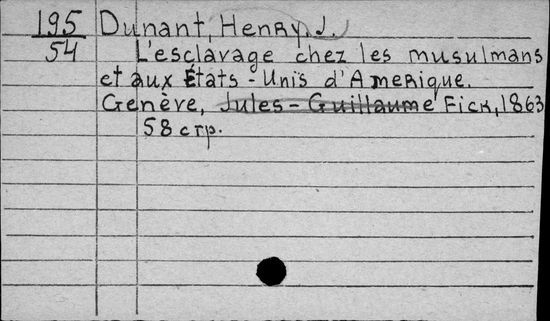 195 Dunant, Henry J.
54 L'esclavage chez les musulmans
et aux États-Unis d'Amerique.
Genève, Jules-Guillaume Fick, 1863
58 стр.